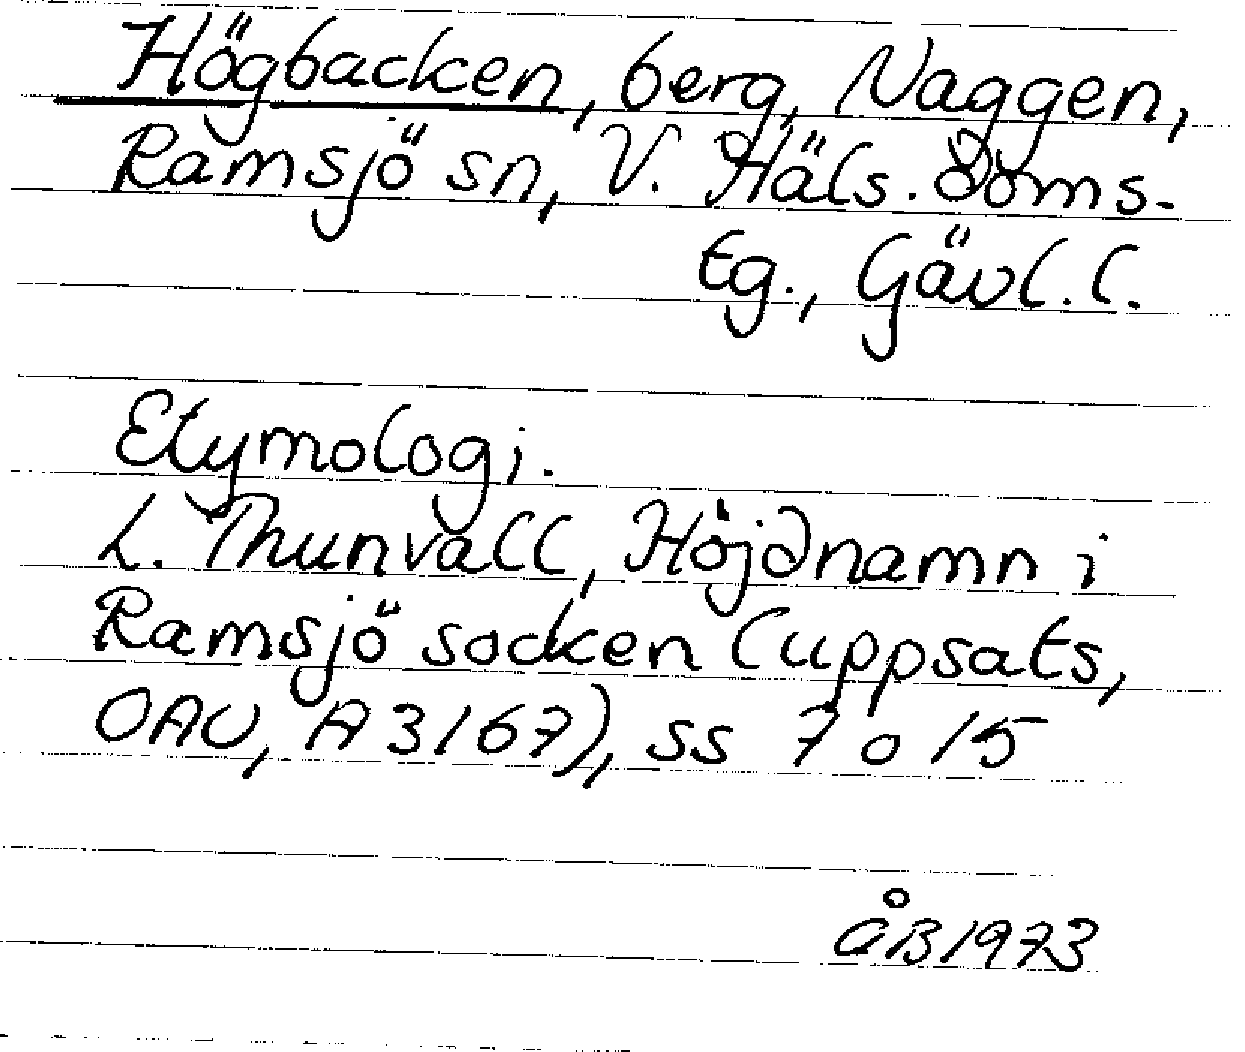 Högbacken, berg, Naggen,
Ramsjö sn, V. Häls. doms-
tg., Gävl. l.
Etymologi.
L. Thunvall, Höjdnamn i
Ramsjö socken (uppsats,
OAU, A 3167), ss 7 o 15
ÅB 1973